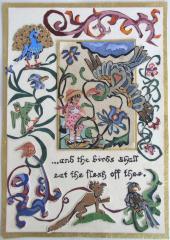 ...and the birds shall
eat the flesh off thee.